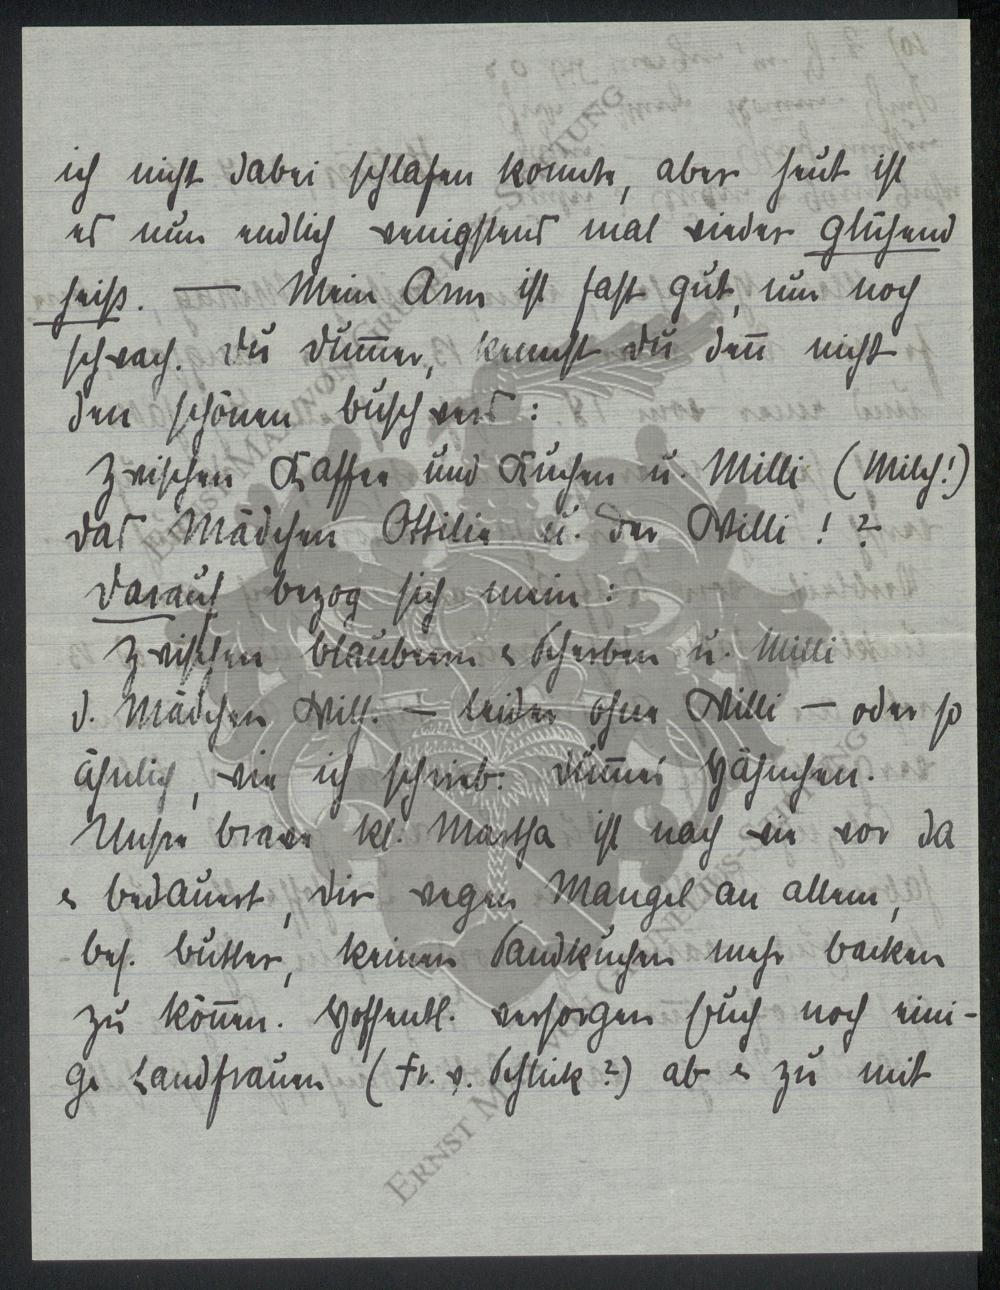 ich nicht dabei schlafen konnte, aber heut ist
es nun endlich wenigstens mal wieder glühend
heiß. — Mein Arm ist fast gut, nur noch
schwach. Du Dum̄er, kennst Du den̄ nicht
den schönen Buschvers:
Zwischen Kaffee und Kuchen u. Milli (Milch!)
das Mädchen Ottilie u. der Willi!?
Darauf bezog sich mein:
Zwischen Blaubeern & Scherben u. Milli
d. Mädchen Wilh. — leider ohne Willi — oder so
ähnlich, wie ich schrieb. Dum̄es Hähnchen.
Unsre brave kl. Martha ist nach wie vor da
& bedauert, Dir wegen Mangel an allem,
bes. Butter, keinen Sandkuchen mehr backen
zu kön̄en. Hoffentl. versorgen Euch noch eini-
ge Landfrauen (Fr. v. Schlick?) ab & zu mit
ERNST MAGNUS-STIFTUNG